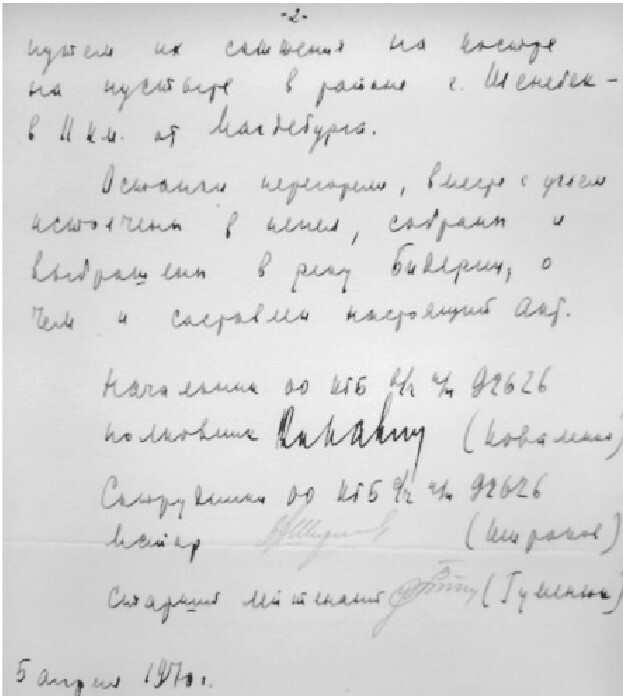 -2-
путем их сожжения на костре
на пустыре в районе г. Шенебек -
в 11 км. от Магдебурга.
Останки перегорели, вместе с углем
истолчены в пепел, собраны и
выброшены в реку Бидериц, о
чем и составлен настоящий акт.
Начальник ОО КГБ в/ч п/п 92626
полковник (Коваленко)
Сотрудники ОО КГБ в/ч п/п 92626
майор (Широков)
Старший лейтенант (Гуменюк)
5 апреля 1970 г.